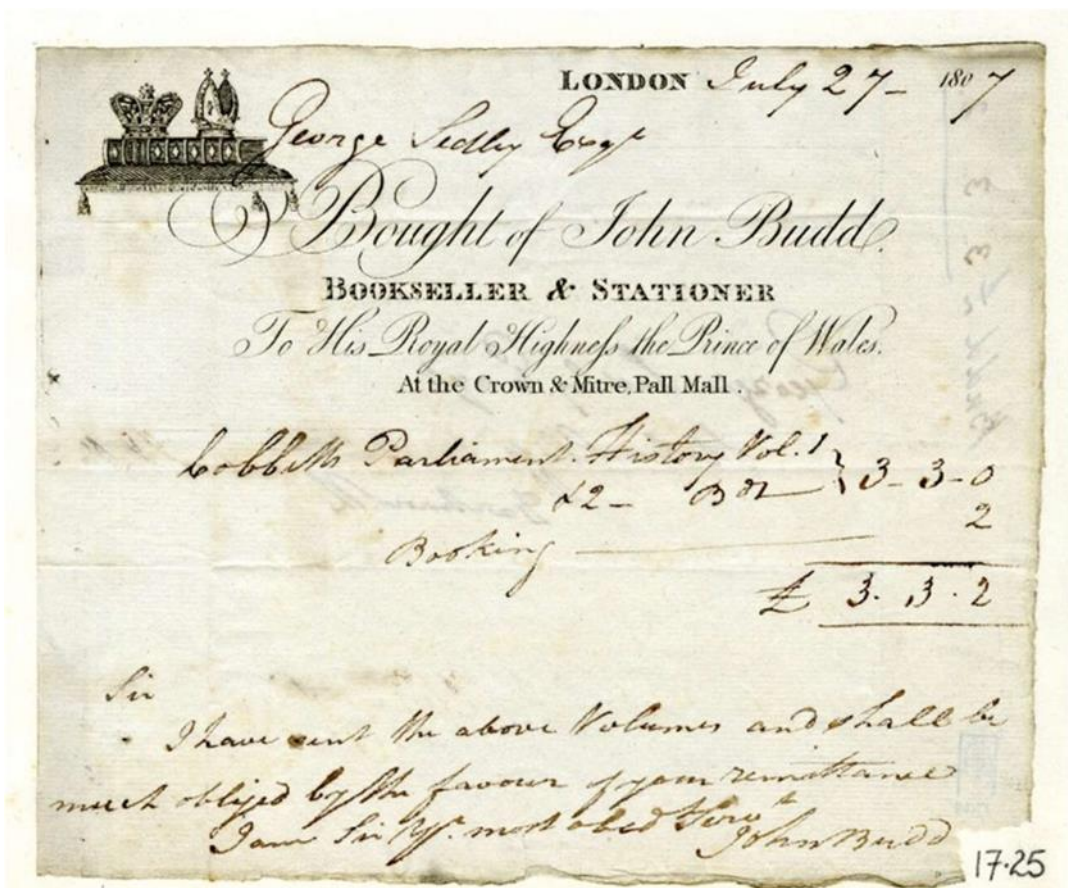 LONDON July 27- 1807
George Sedley Esqr
Bought of John Budd.
BOOKSELLER & STATIONER
To His Royal Highneſs the Prince of Wales.
At the Crown & Mitre, Pall Mall.
Cobbetts Parliament. History Vol. 1
& 2 - Bds } 3-3-0
Booking 2
£ 3. 3. 2
Sir
I have sent the above Volumes and shall be
much obliged by the favour of your remittance
I am Sir Yr. most obed Servt
John Budd
17.25